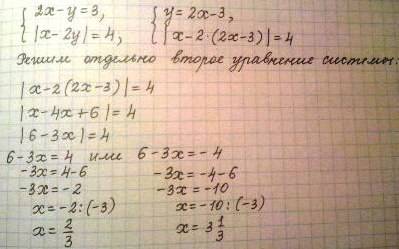 { 2x-y=3, { y=2x-3,
{ |x-2y|=4, { |x-2·(2x-3)|=4
Решим отдельно второе уравнение системы:
|x-2(2x-3)|=4
|x-4x+6|=4
|6-3x|=4
6-3x=4 или 6-3x=-4
-3x=4-6 -3x=-4-6
-3x=-2 -3x=-10
x=-2:(-3) x=-10:(-3)
x=2/3 x=3 1/3